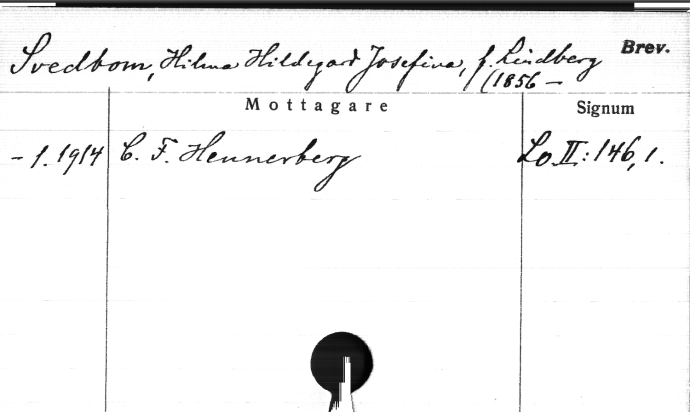 Svedbom, Hilma Hildegard Josefina, f. Lindberg Brev.
(1856 —
Mottagare Signum
- 1. 1914 C. F. Hennerberg Lo II: 146, 1.